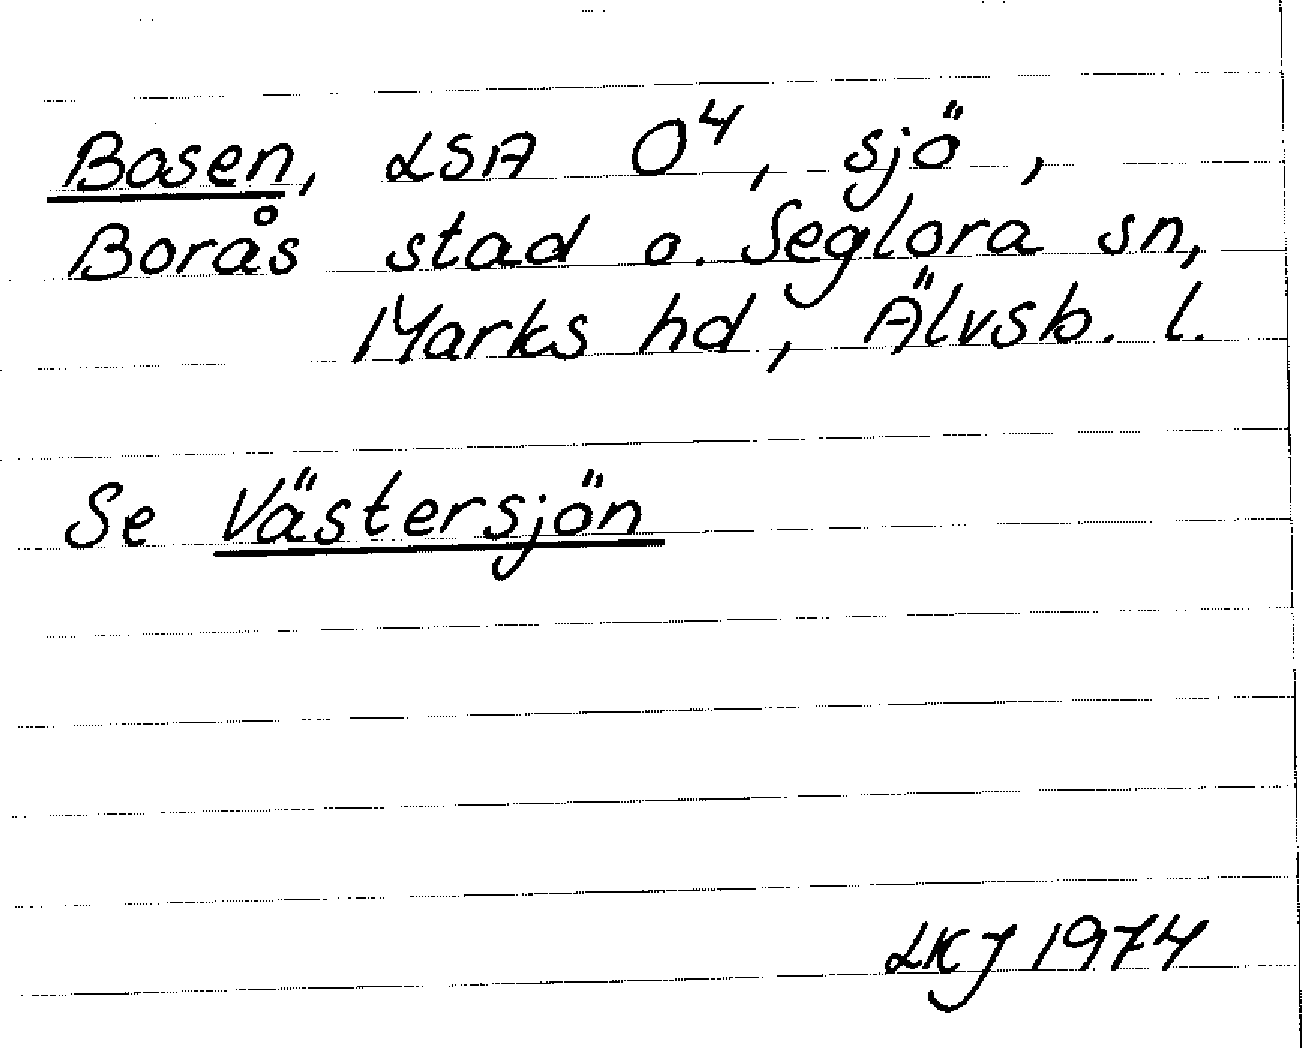 Bosen, LSA O4, sjö,
Borås stad o. Seglora sn,
Marks hd, Älvsb. l.
Se Västersjön
LKJ 1974